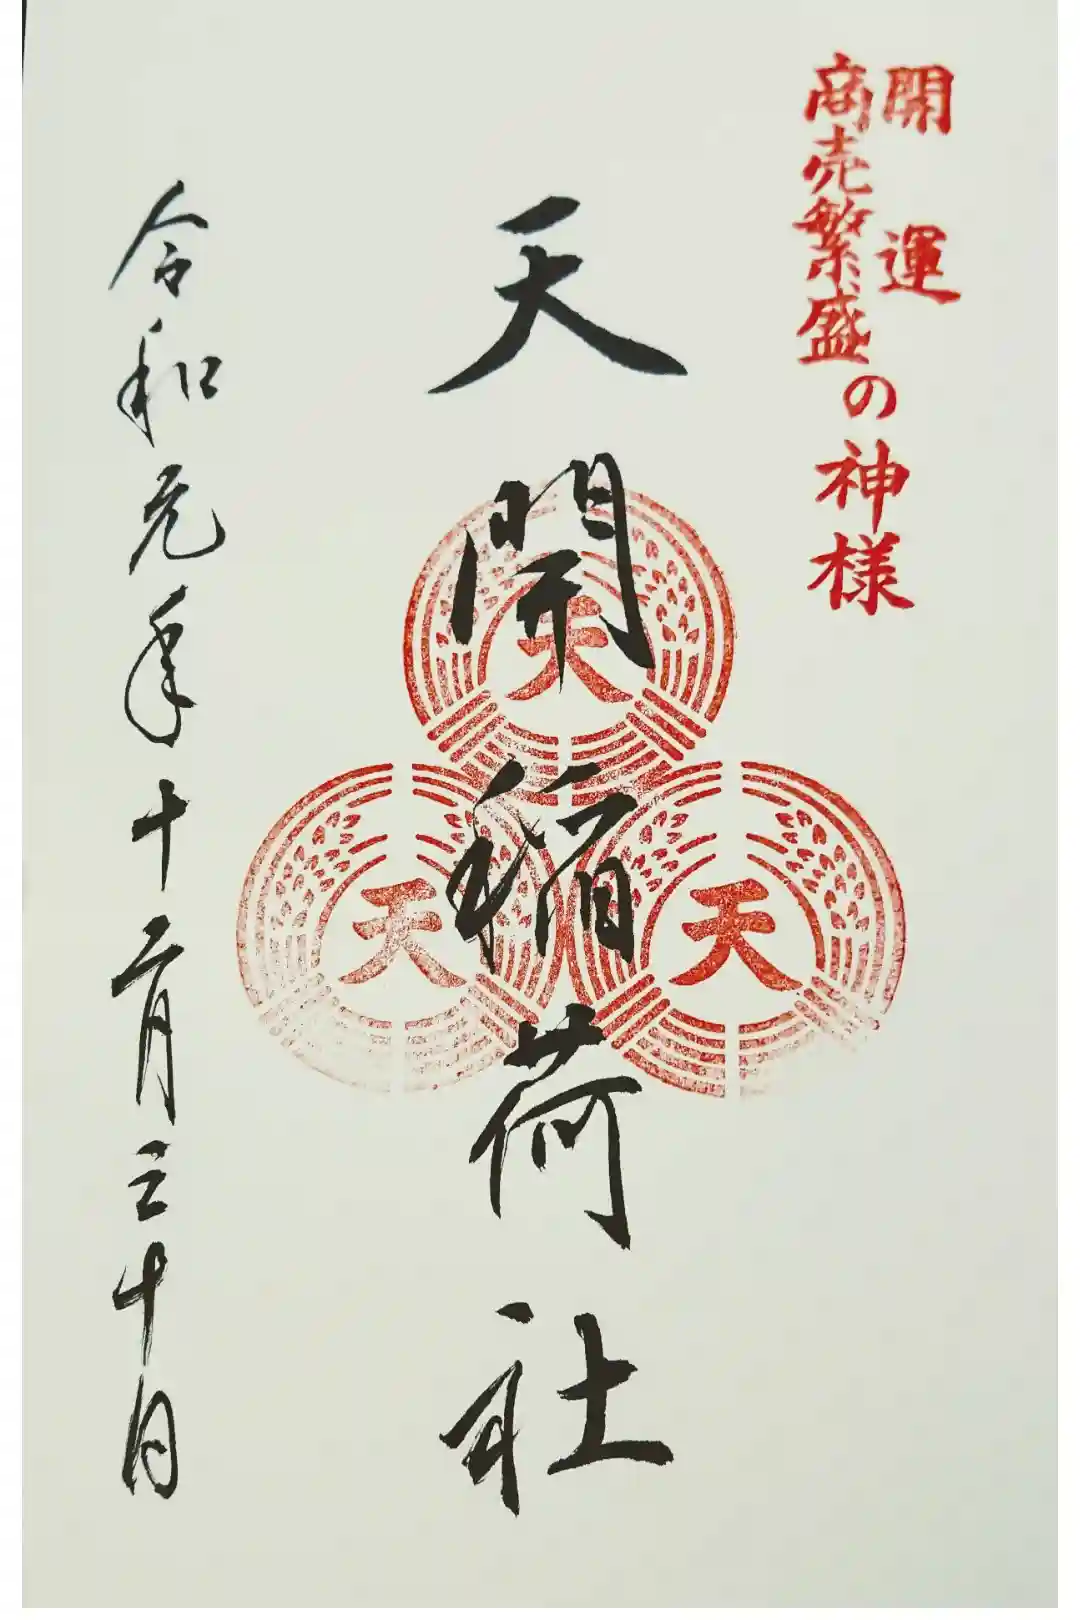 開運
商売繁盛
の神様
天開稲荷社
天
天
天
令和元年十二月三十日